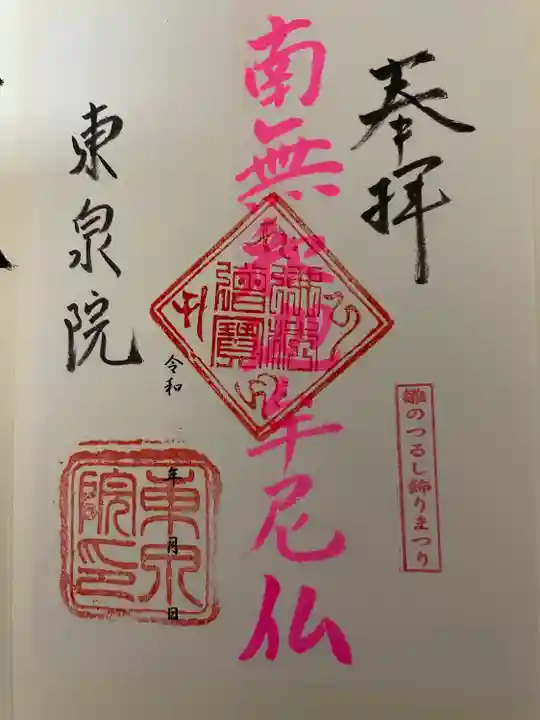 奉拝
雛のつるし飾りまつり
南無釈迦牟尼仏
佛法僧寶
東泉院
令和
年
月
日
東泉院印